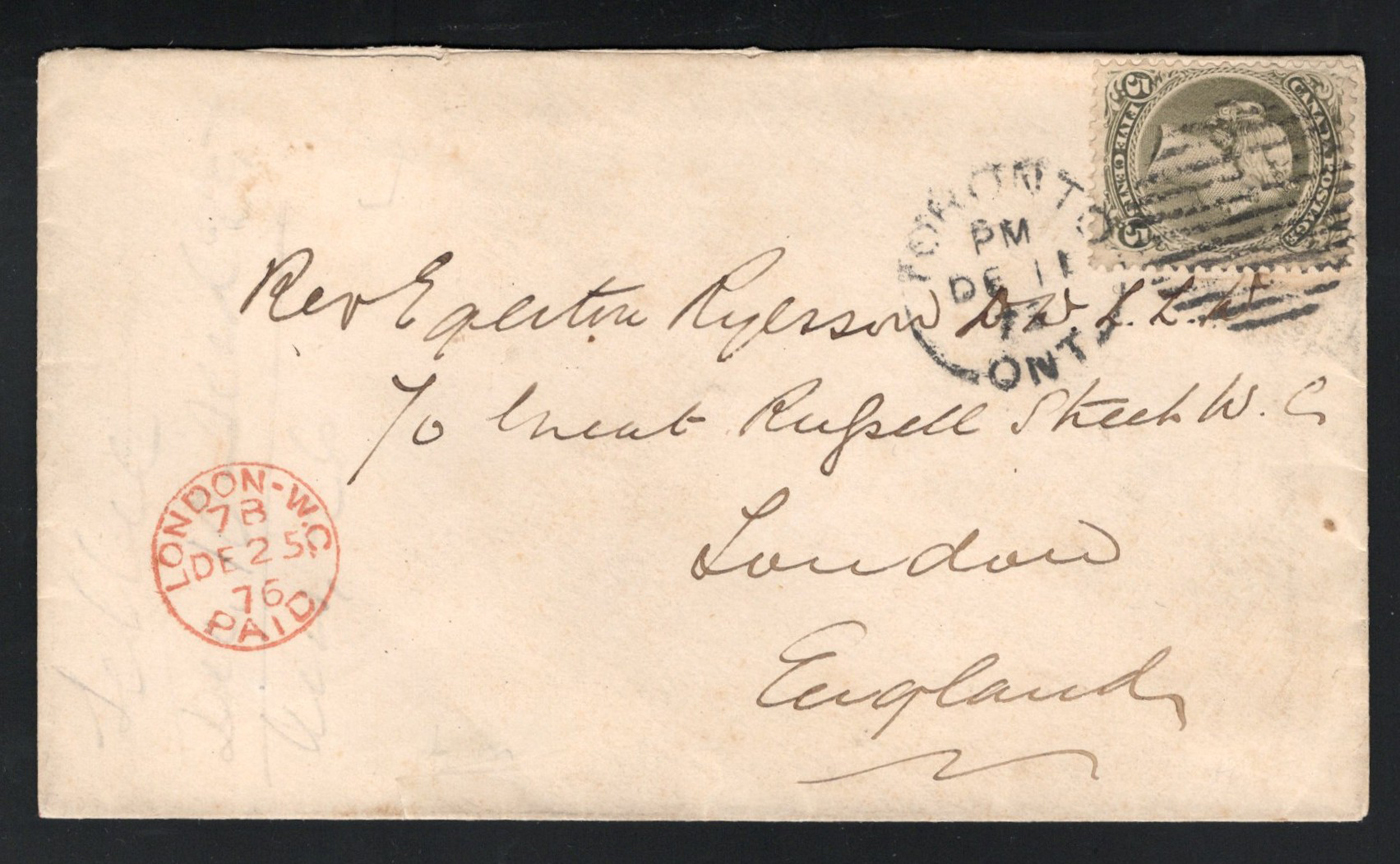 5 FIVE CENTS 5
CANADA POSTAGE
TORONTO
PM
DE 11
7
ONT.
Rev Egerton Ryerson D.D. L.L.D
70 Great Russell Street W. C.
London
England
LONDON-W.C
7B
DE 25
76
PAID